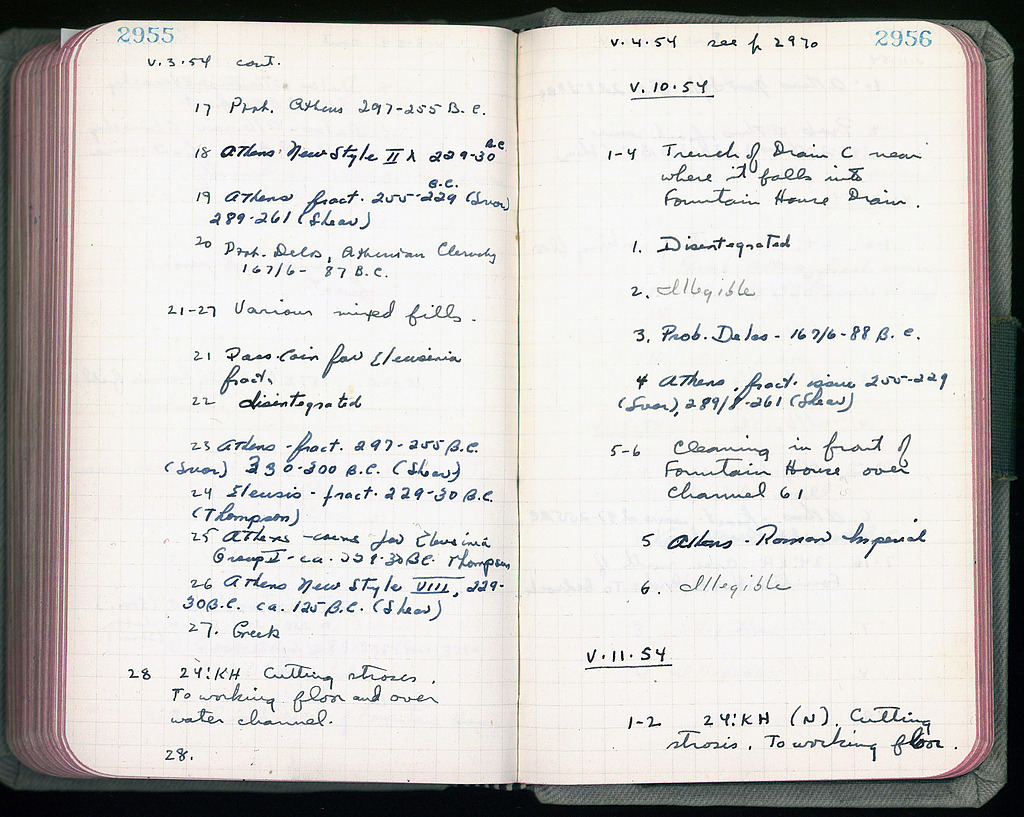 2955
V.3.54 cont.
17 Prob. Athens 297-255 B.C.
18 Athens New Style II λ 229-30 B.C.
19 Athens fract. 255-229 B.C. (Svor)
289-261 (Shear)
20 Prob. Delos, Athenian Cleruchy
167/6- 87 B.C.
21-27 Various mixed fills.
21 Poss. Coin for Eleusinia
fract.
22 disintegrated
23 Athens - fract. 297-255 B.C.
(Svor) 330-300 B.C. (Shear)
24 Eleusis - fract. 229-30 B.C.
(Thompson)
25 Athens - coins for Eleusinia
Group - ca. 229-30 BC. Thompson
26 Athens New Style VIII, 229-
30 B.C. ca. 125 B.C. (Shear)
27. Greek
28 24:KH Cutting stroses.
To working floor and over
water channel.
28.
2956
V.4.54 see p 2970
V.10.54
1-4 Trench of Drain C near
where it falls into
Fountain House Drain.
1. Disentegrated
2. Illegible
3. Prob. Delos - 167/6-88 B.C.
4 Athens, fract. issue 255-229
(Svor), 289/8-261 (Shear)
5-6 Cleaning in front of
Fountain House over
Channel 61
5 Athens - Roman Imperial
6. Illegible
V.11.54
1-2 24:KH (N). Cutting
strosis. To working floor.